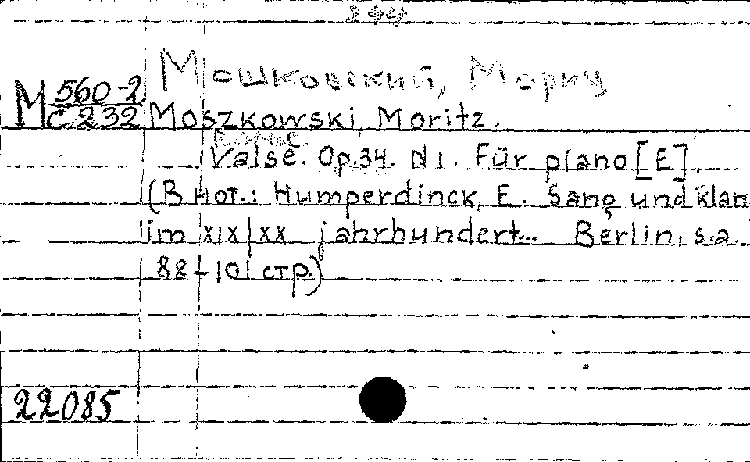 Мошковский, Мориц
M 560-2
C 232
Moszkowski, Moritz.
Valse. Op.34. N1. Für piano [E]
(В нот.: Humperdinck, E. Sang und klan
im XIX/XX jahrhundert... Berlin, s.a.
88-101 стр.)
22085